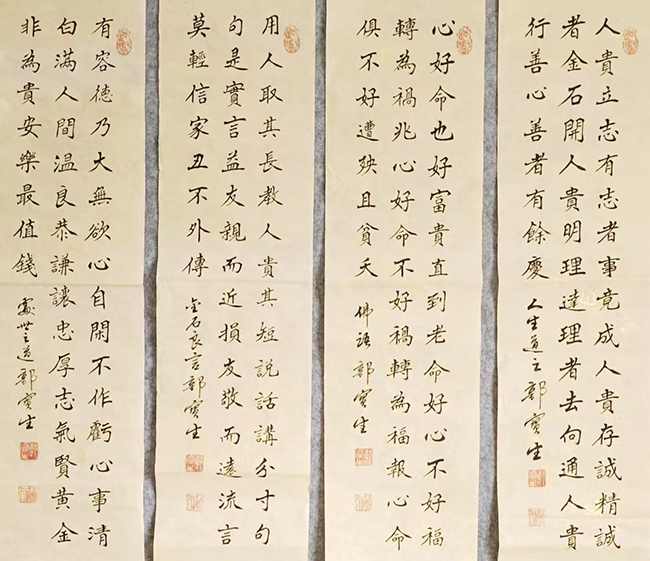 人貴立志有志者事竟成人貴存誠精誠
者金石開人貴明理達理者去向通人貴
行善心善者有餘慶 人生道之郭寶生
心好命也好富貴直到老命好心不好福
轉為禍兆心好命不好禍轉為福報心命
俱不好遭殃且貧夭 佛語郭寶生
用人取其長教人貴其短説話講分寸句
句是實言益友親而近損友敬而遠流言
莫輕信家丑不外傳 金石良言郭寶生
有容德乃大無欲心自閑不作虧心事清
白滿人間温良恭謙讓忠厚志氣賢黃金
非為貴安樂最值錢 處世之道郭寶生